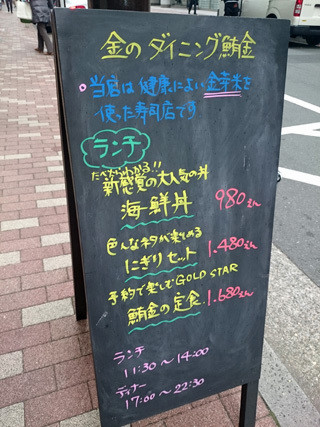 金のダイニング鮪金
当店は健康によい金芽米を
使った寿司店です
ランチ
たべたらわかる!!
新感覚の大人気の丼
海鮮丼 980えん
色んなネタが楽しめる
にぎりセット 1.480えん
予約で楽しむGOLD STAR
鮪金の定食 1.680えん
ランチ
11:30～14:00
ディナー
17:00～22:30